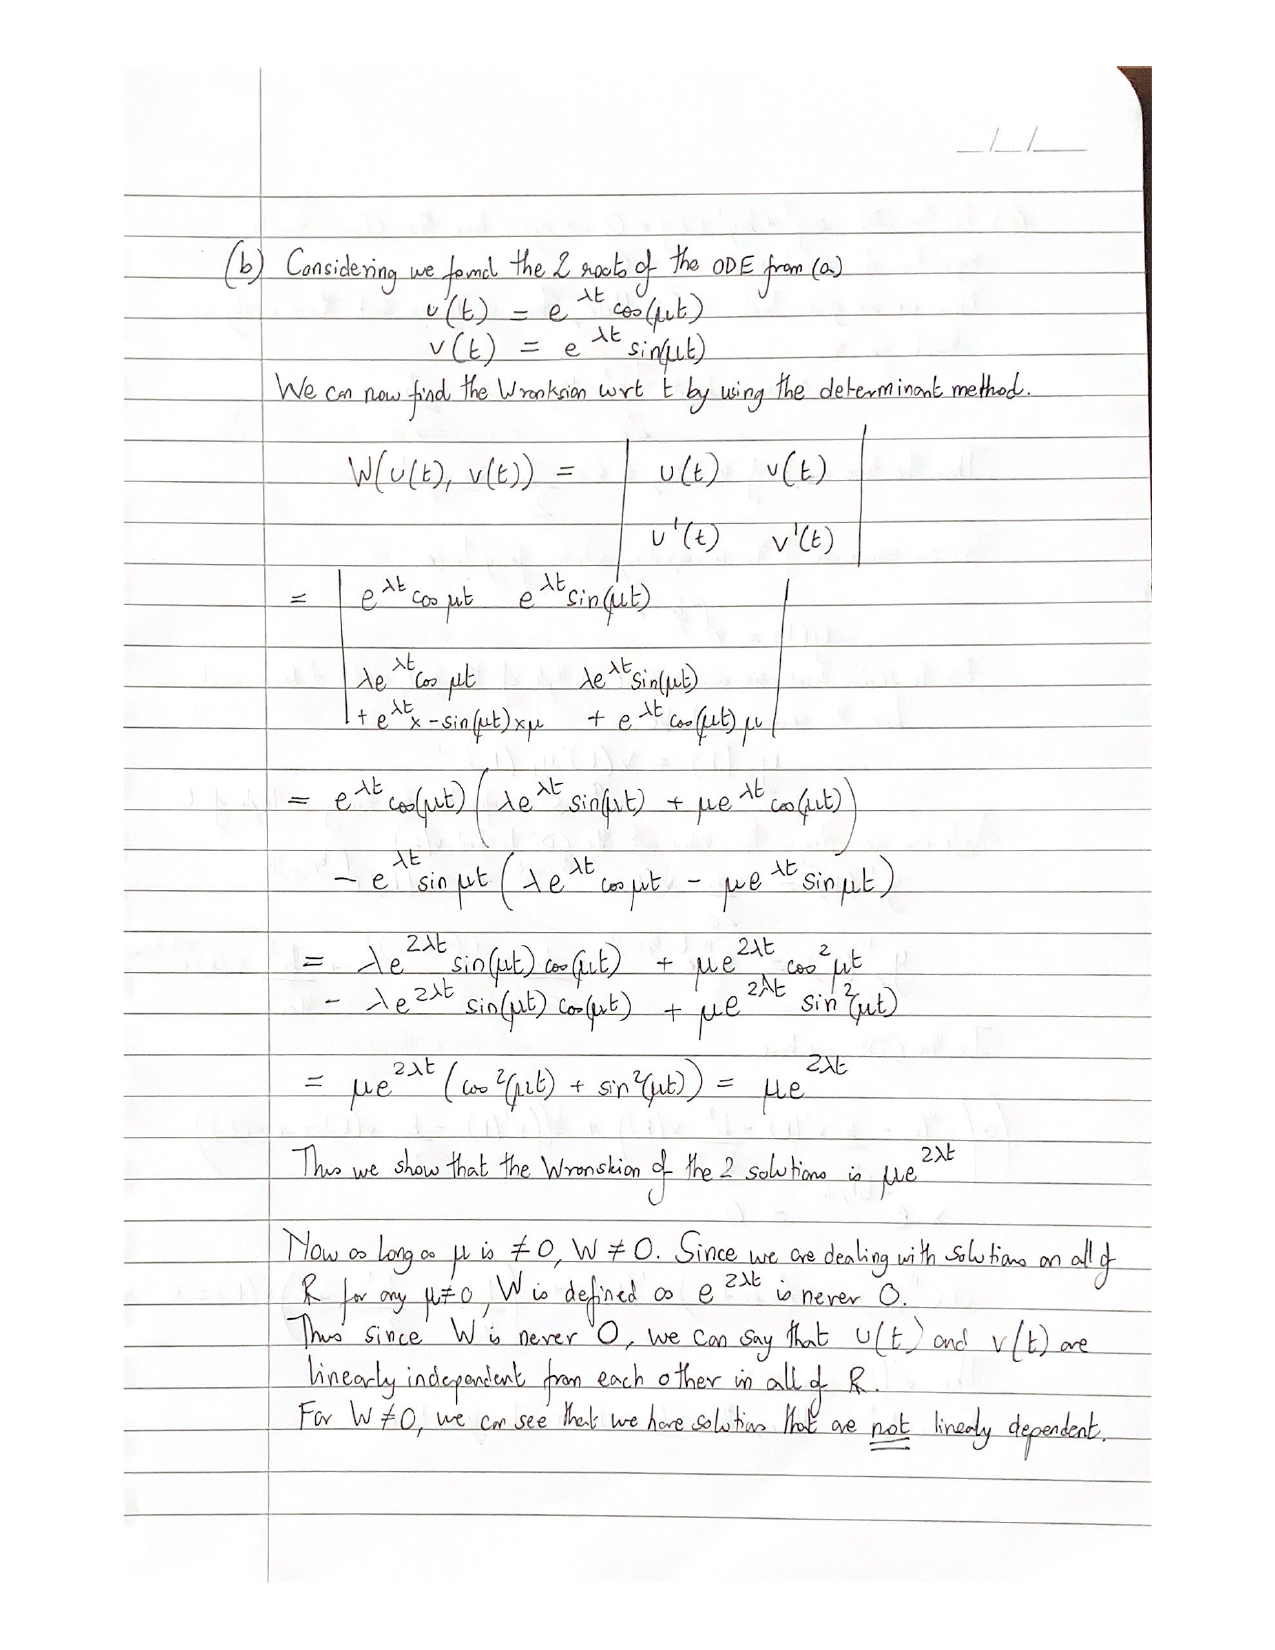 __/__/____
(b) Considering we found the 2 roots of the ODE from (a)
u(t) = e^λt cos(μt)
v(t) = e^λt sin(μt)
We can now find the Wronksian wrt t by using the determinant method.
W(u(t), v(t)) = | u(t) v(t) |
| u'(t) v'(t) |
= | e^λt cos μt e^λt sin(μt) |
| λe^λt cos μt λe^λt sin(μt) |
| + e^λt x - sin(μt) x μ + e^λt cos(μt) μ |
= e^λt cos(μt) (λe^λt sin(μt) + μe^λt cos(μt))
- e^λt sin μt (λe^λt cos μt - μe^λt sin μt)
= λe^2λt sin(μt) cos(μt) + μe^2λt cos² μt
- λe^2λt sin(μt) cos(μt) + μe^2λt sin²(μt)
= μe^2λt (cos²(μt) + sin²(μt)) = μe^2λt
Thus we show that the Wronskion of the 2 solutions is μe^2λt
Now as long as μ is ≠ 0, W ≠ 0. Since we are dealing with solutions on all of
R for any μ≠0, W is defined as e^2λt is never 0.
Thus since W is never 0, we can say that u(t) and v(t) are
linearly independent from each other in all of R.
For W ≠ 0, we can see that we have solutions that are not linearly dependent.